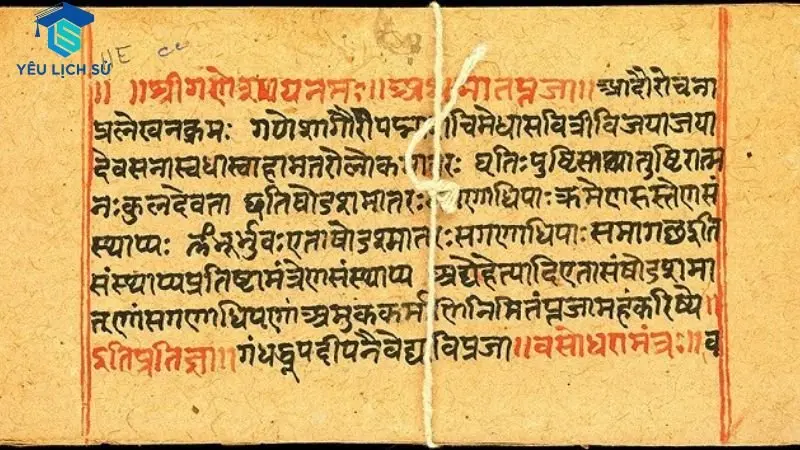 YÊU LỊCH SỬ
॥ ॥श्रीगणेशायनमः॥ आदौरोचना
प्रलेखनक्रमः गणेशागौरीप मेधासवित्रीविजयाजया
देवसनास्वधास्वाहामतरोलोकमातरः धृतिःपुष्टिस्तथातुष्टिरात्म
नःकुलदेवता षोडशमातरः गणाधिपाः क्रमेणहस्तेणसं
स्थाप्यः भूर्भुवःएताषोडशमातरःसगणाधिपाः
संस्थाप्यप्रतिष्टामंत्रेणसंस्थाप्य अद्येहेत्यादिएतासंषोडशमा
तृणांसगणाधिपणां अमुककर्माणिनिमितंपूजामहंकरिष्ये॥
इतिप्रतिज्ञा॥ गंधद्धूपदीपनैवेद्यविपूजा॥वसोधरामंत्रः॥व